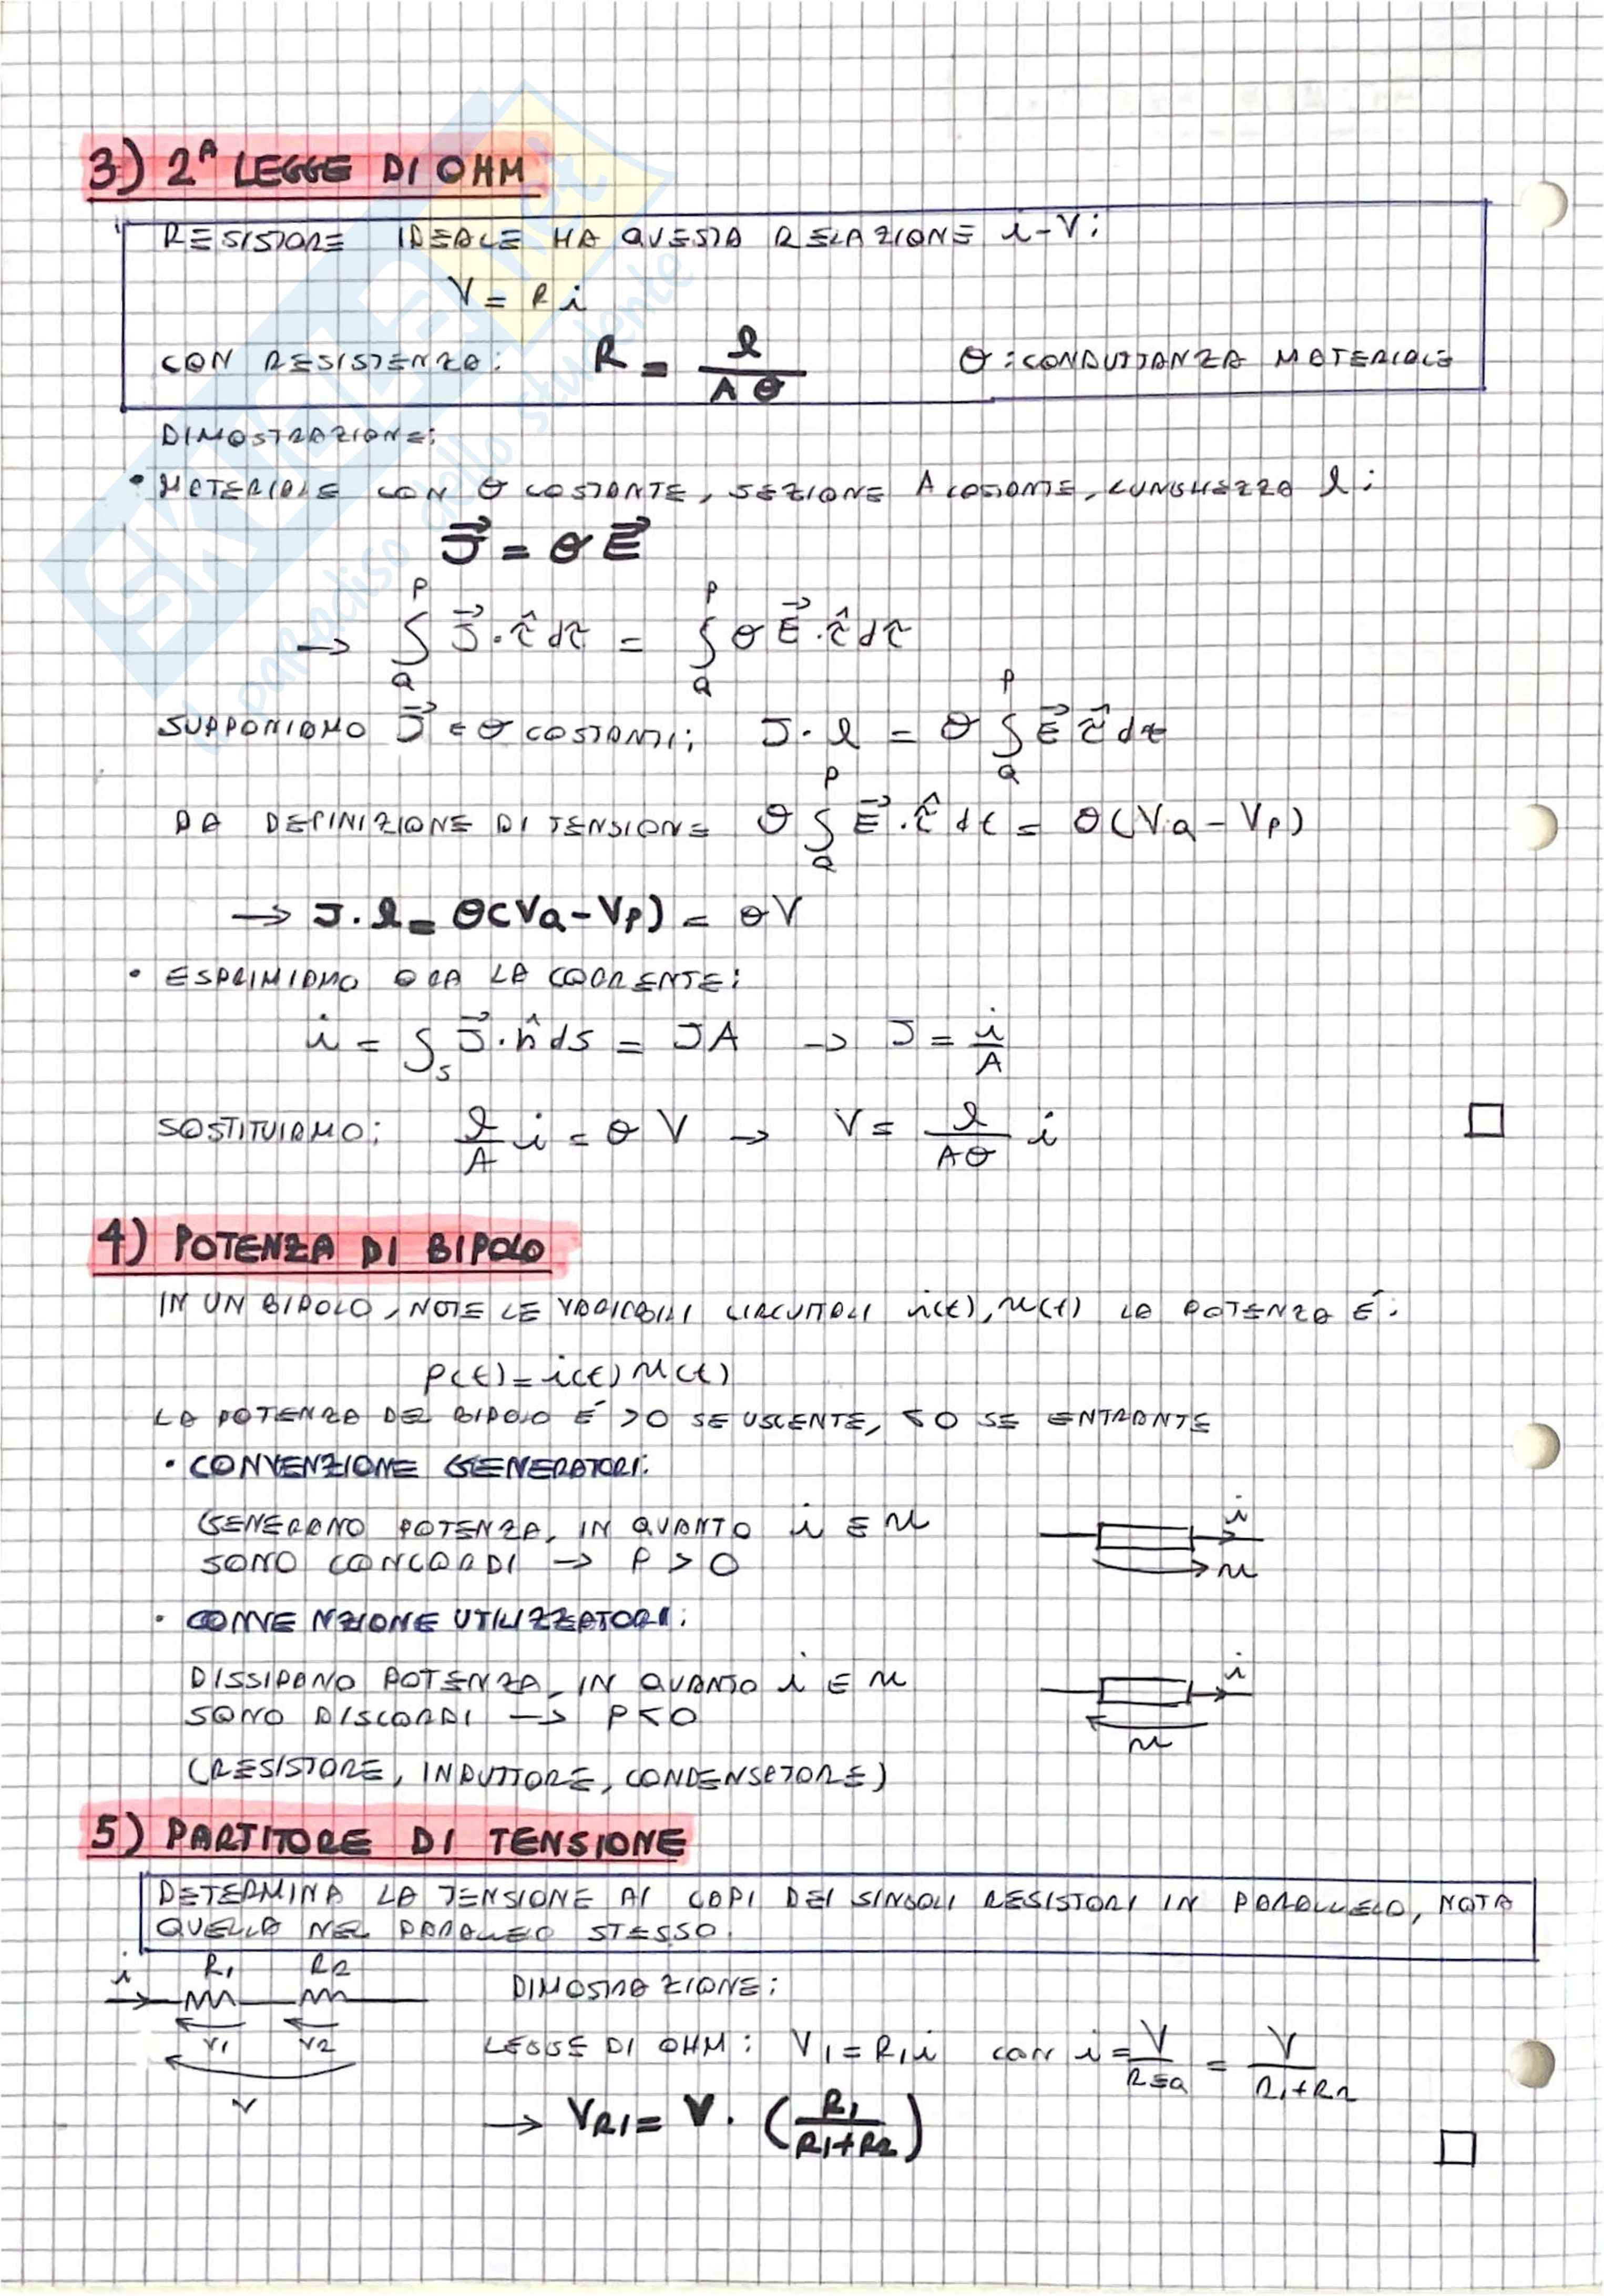 3) 2ᴬ LEGGE DI OHM
RESISTORE IDEALE HA QUESTA RELAZIONE i-V:
V = R i
CON RESISTENZA: R = l / (A θ) θ: CONDUTTANZA MATERIALE
DIMOSTRAZIONE:
• MATERIALE CON θ COSTANTE, SEZIONE A COSTANTE, LUNGHEZZA l:
J⃗ = θ E⃗
→ ∫_Q^P J⃗ · τ̂ dτ = ∫_Q^P θ E⃗ · τ̂ dτ
SUPPONIAMO J⃗ E θ COSTANTI: J · l = θ ∫_Q^P E⃗ τ̂ dτ
DA DEFINIZIONE DI TENSIONE θ ∫_Q^P E⃗ · τ̂ dτ = θ(VQ - VP)
→ J · l = θ(VQ - VP) = θV
• ESPRIMIAMO ORA LA CORRENTE:
i = ∫_S J⃗ · n̂ dS = JA → J = i/A
SOSTITUIAMO: l/A i = θ V → V = l/(Aθ) i □
4) POTENZA DI BIPOLO
IN UN BIPOLO, NOTE LE VARIABILI CIRCUITALI i(t), u(t) LA POTENZA É:
P(t) = i(t) u(t)
LA POTENZA DEL BIPOLO É >0 SE USCENTE, <0 SE ENTRANTE
• CONVENZIONE GENERATORI:
GENERANO POTENZA, IN QUANTO i E u
SONO CONCORDI → P > 0
i
u
• CONVENZIONE UTILIZZATORI:
DISSIPANO POTENZA, IN QUANTO i E u
SONO DISCORDI → P < 0
i
u
(RESISTORE, INDUTTORE, CONDENSATORE)
5) PARTITORE DI TENSIONE
DETERMINA LA TENSIONE AI CAPI DEI SINGOLI RESISTORI IN PARALLELO, NOTA
QUELLA NEL PARALLELO STESSO.
i R1 R2
V1 V2
V
DIMOSTRAZIONE:
LEGGE DI OHM: V1 = R1 i con i = V/REQ = V/(R1+R2)
→ VR1 = V · (R1/(R1+R2)) □
SKUOLA.net
il paradiso dello studente